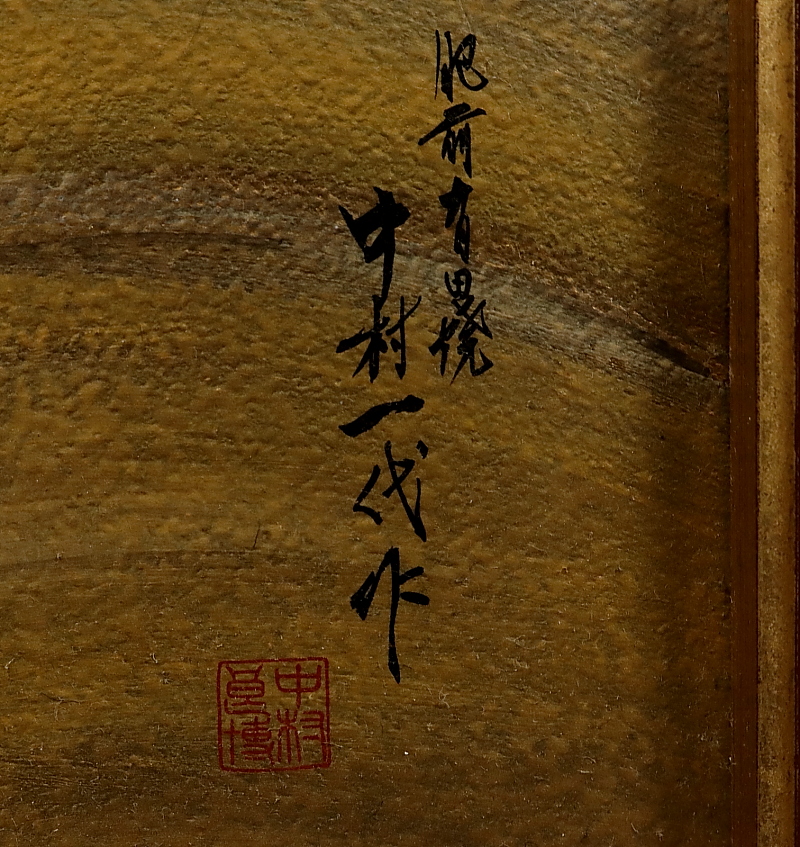 肥前有田焼
中村一代作
中村
博